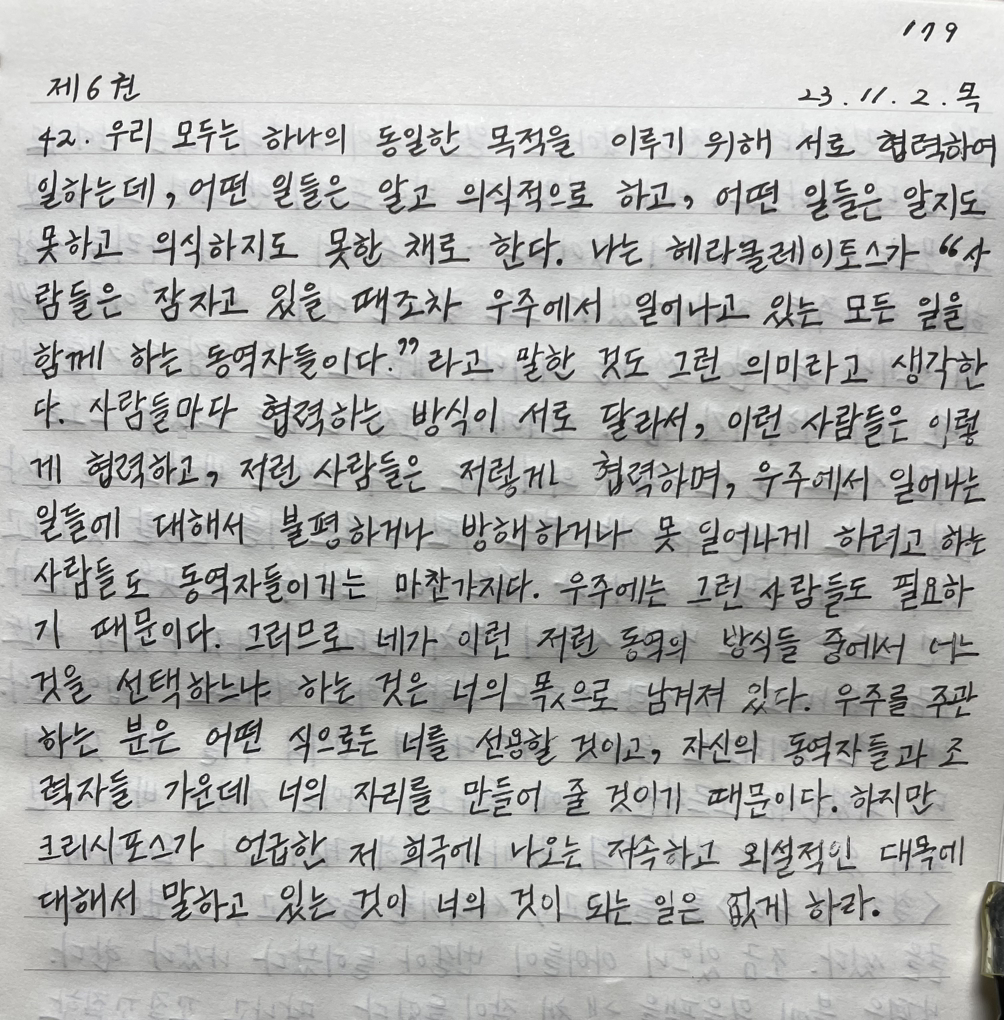 179
제6권 23.11.2.목
42. 우리 모두는 하나의 동일한 목적을 이루기 위해 서로 협력하여
일하는데, 어떤 일들은 알고 의식적으로 하고, 어떤 일들은 알지도
못하고 의식하지도 못한 채로 한다. 나는 헤라클레이토스가 “사
람들은 잠자고 있을 때조차 우주에서 일어나고 있는 모든 일을
함께 하는 동역자들이다.”라고 말한 것도 그런 의미라고 생각한
다. 사람들마다 협력하는 방식이 서로 달라서, 이런 사람들은 이렇
게 협력하고, 저런 사람들은 저렇게 협력하며, 우주에서 일어나는
일들에 대해서 불평하거나 방해하거나 못 일어나게 하려고 하는
사람들도 동역자들이기는 마찬가지다. 우주에는 그런 사람들도 필요하
기 때문이다. 그러므로 네가 이런 저런 동역의 방식들 중에서 어느
것을 선택하느냐 하는 것은 너의 몫으로 남겨져 있다. 우주를 주관
하는 분은 어떤 식으로든 너를 선용할 것이고, 자신의 동역자들과 조
력자들 가운데 너의 자리를 만들어 줄 것이기 때문이다. 하지만
크리시포스가 언급한 저 희극에 나오는 저속하고 외설적인 대목에
대해서 말하고 있는 것이 너의 것이 되는 일은 없게 하라.